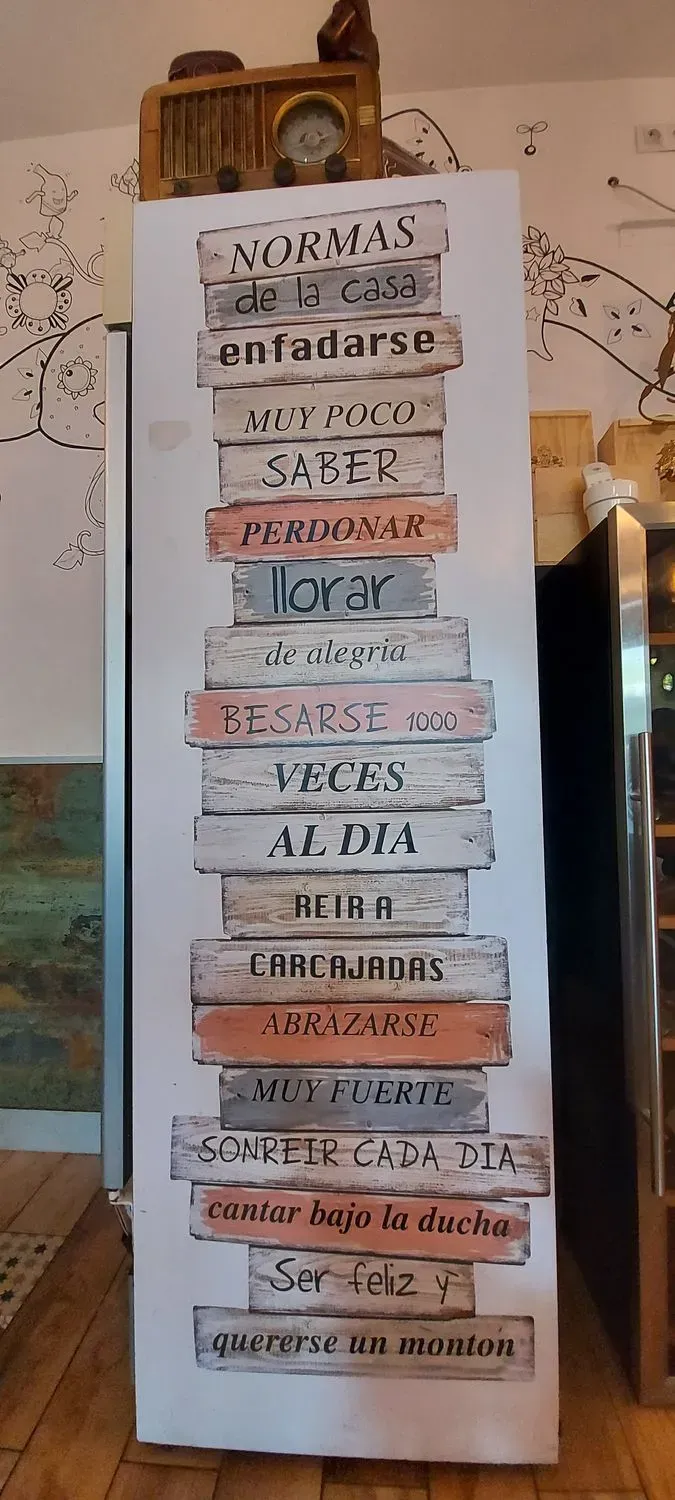 NORMAS
de la casa
enfadarse
MUY POCO
SABER
PERDONAR
llorar
de alegria
BESARSE 1000
VECES
AL DIA
REIR A
CARCAJADAS
ABRAZARSE
MUY FUERTE
SONREIR CADA DIA
cantar bajo la ducha
Ser feliz y
quererse un monton